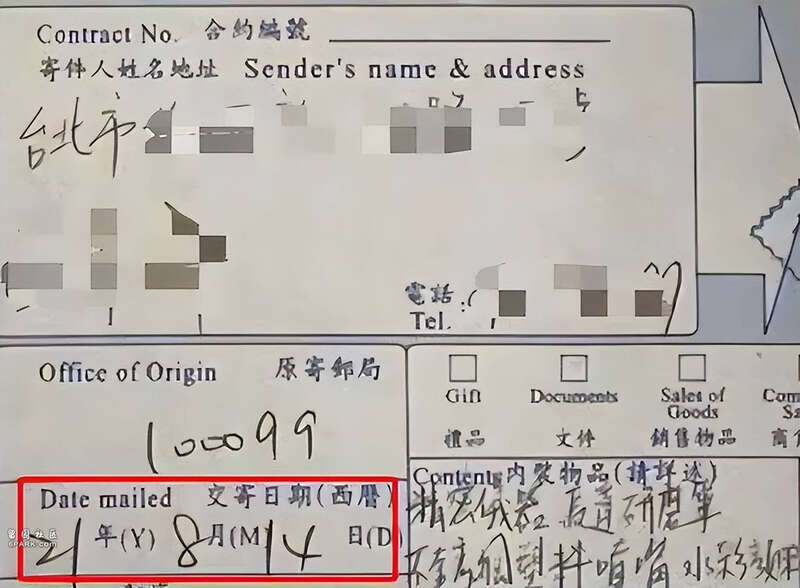 Contract No. 合約編號
寄件人姓名地址 Sender's name & address
台北市
電話:
Tel.
Office of Origin 原寄郵局
100099
Gift
Documents
Sales of Goods
禮品
文件
銷售物品
Date mailed 交寄日期(西曆)
年(Y) 8月(M) 14日(D)
Contents 內裝物品(請詳述)
精密儀器
塑料噴嘴
6PARK.COM